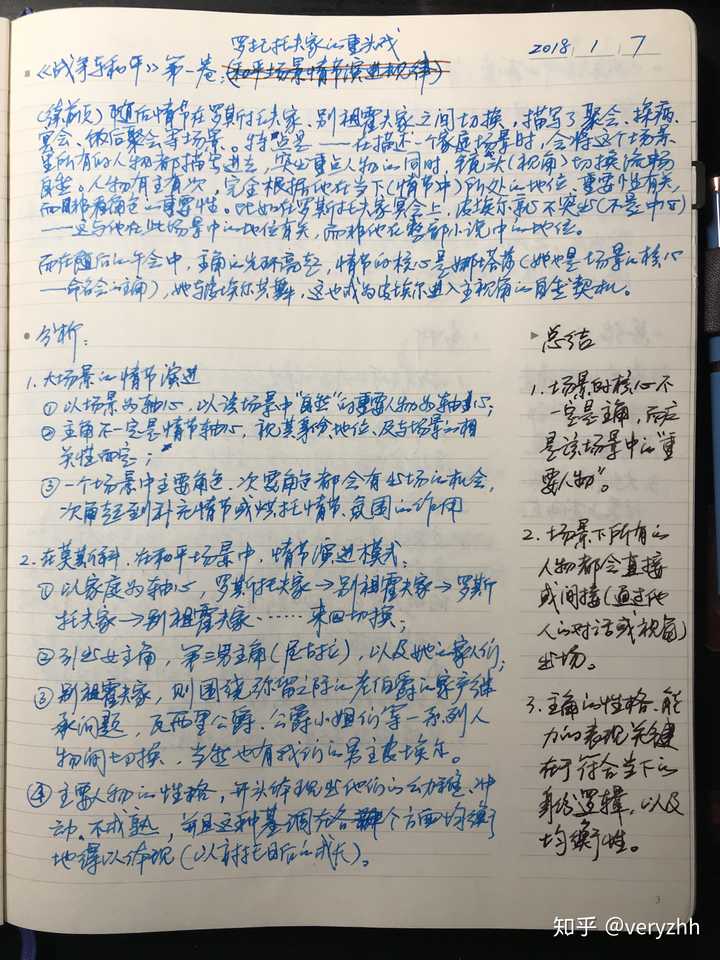 罗托夫家的重头戏
2018. 1. 7
《战争与和平》第一卷：(和平场景情节演进规律)
(续前页) 随后情节在罗斯托夫家、别祖霍夫家之间切换，描写了聚会、探病、
宴会、饭后聚会等场景。特点是——在描述一个家庭场景时，会将这个场景
里所有的人物都描写进去，突出重点人物的同时，镜头(视角)切换流畅
自然。人物有主有次，完全根据他在当下(情节中)所处的地位、重要性有关，
而非看角色的重要性。比如在罗斯托夫家宴会上，皮埃尔就不突出(不是中心)
——这与他在此场景中的地位有关，而非他在整部小说中的地位。
而在随后的午会中，主角的光环亮起，情节的核心是娜塔莎(她也是场景的核心
——命名会的主角)，她与皮埃尔共舞，这也成为皮埃尔进入主视角的自然契机。
分析：
1. 大场景的情节演进
① 以场景为轴心，以该场景中"自然"的重要人物为轴心；
② 主角不一定是情节轴心，视其身份、地位、及与场景的相
关性而定；
③ 一个场景中主要角色、次要角色都会有出场的机会，
次角起到补充情节或烘托情节、氛围的作用
2. 在莫斯科，在和平场景中，情节演进模式：
① 以家庭为轴心，罗斯托夫家→别祖霍夫家→罗斯
托夫家→别祖霍夫家……来回切换；
② 引出女主角，第三男主角(尼古拉)，以及她的家人们；
③ 别祖霍夫家，则围绕弥留之际的老伯爵的家产继
承问题，瓦西里公爵、公爵小姐们等一系列人
物间切换，当然也有我们的男主皮埃尔。
④ 主要人物的性格，开头体现出他们的幼稚、冲
动、不成熟，并且这种基调在各个方面均衡
地得以体现(以衬托日后的成长)。
总结
1. 场景的核心不
一定是主角，而应
是该场景中的"重
要人物"。
2. 场景下所有的
人物都会直接
或间接(通过他
人的对话或视角)
出场。
3. 主角的性格、能
力的表现关键
在于符合当下的
身份逻辑，以及
均衡性。
3
知乎 @veryzhh